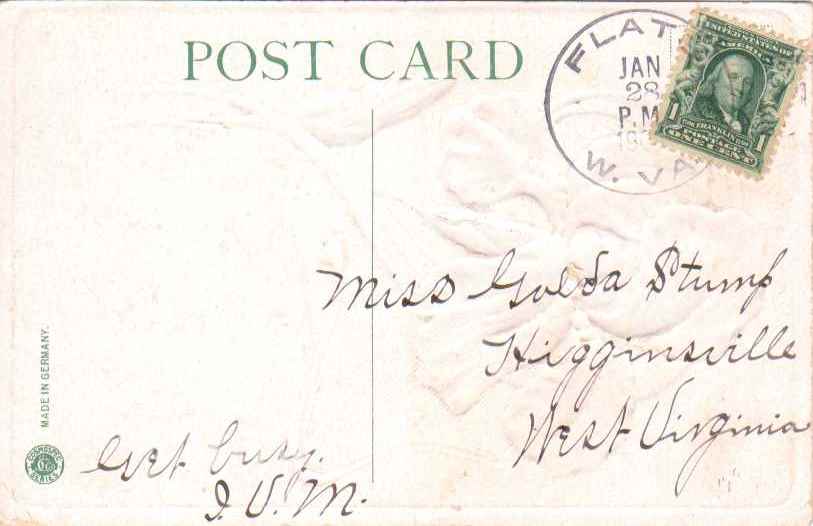 POST CARD
FLAT
JAN
28
P.M
W. VA
UNITED STATES OF
AMERICA
1 1
POSTAGE
ONE CENT
Miss Golda Stump
Higginsville
West Virginia
MADE IN GERMANY.
SERIES
Get busy.
I. V. M.